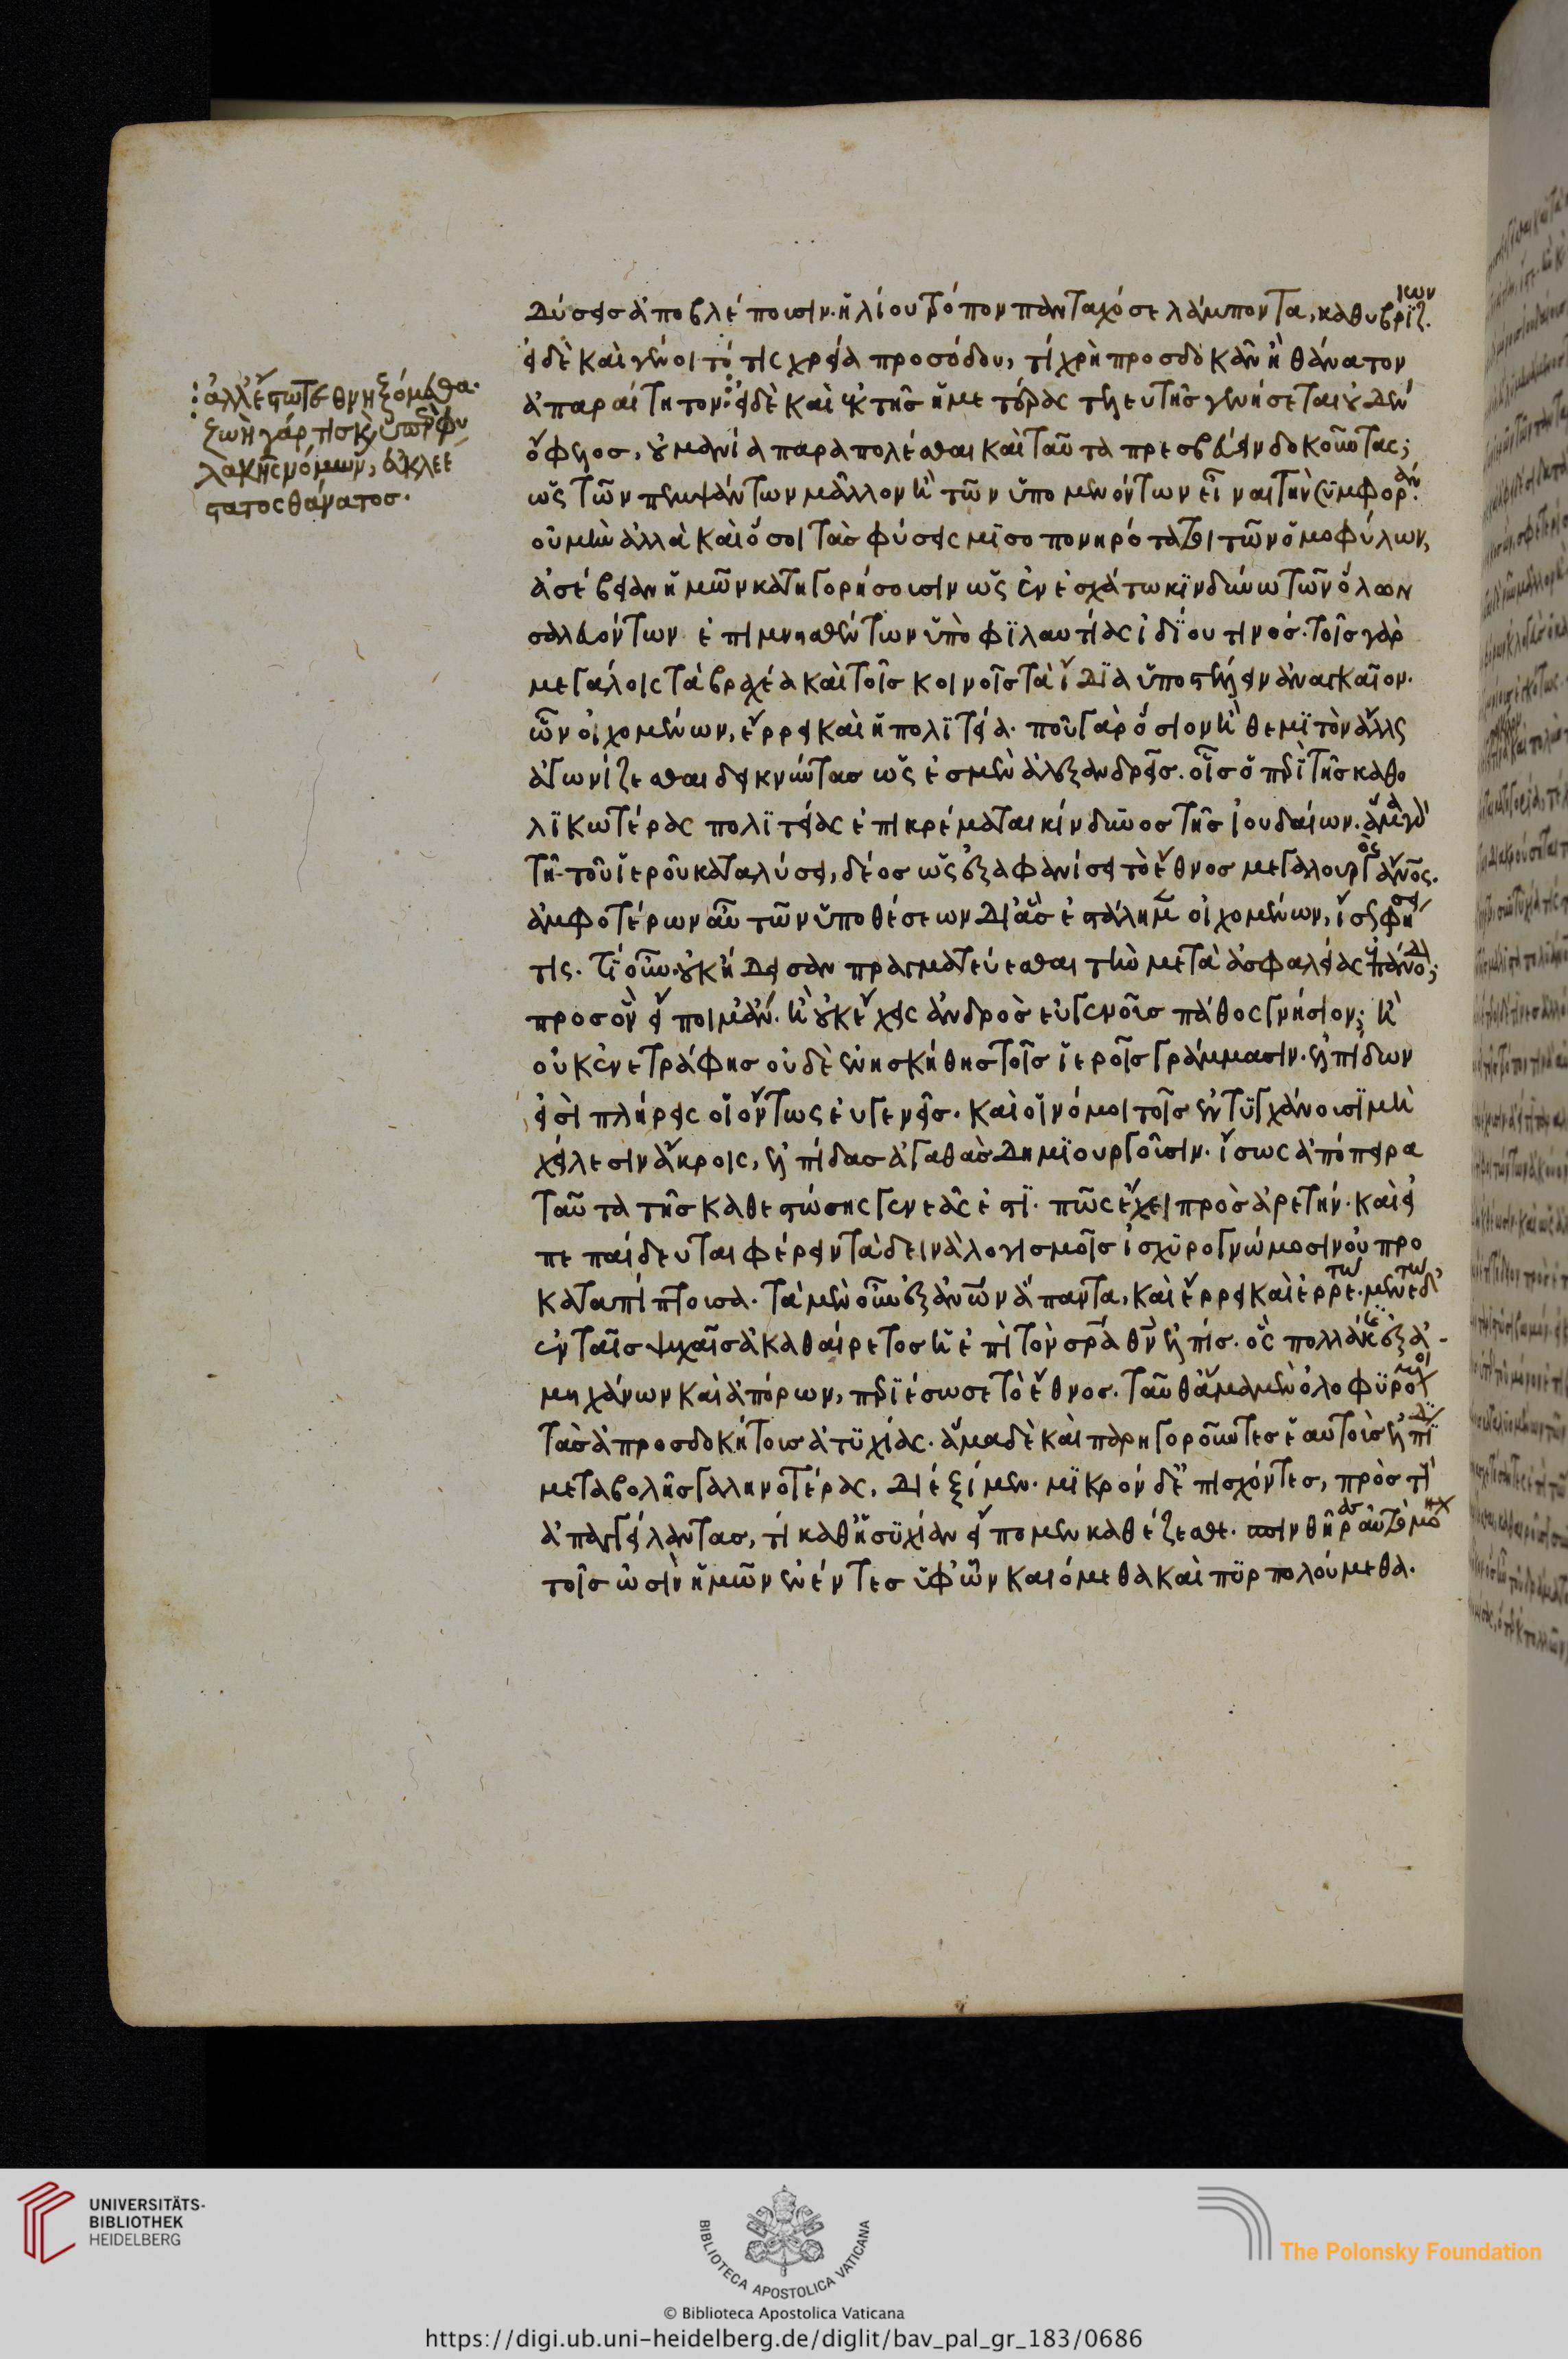 ἀλλ' ἔστω τεθνηξόμεθα·
ζωὴ γάρ τίς καὶ ὑπὲρ φυ
λακῆς νόμων, εὐκλεέ
στατος θάνατος·
δύσεις ἀποβλέπουσιν· ἡλίου τρόπον πανταχόσε λάμποντα, καθυβρίζων.
εἰ δὲ καὶ γένοιτό τις χρεία προσόδου, τί χρὴ προσδοκᾶν ἢ θάνατον
ἀπαραίτητον· εἰ δὲ καὶ ἐκ τῆς ἡμετέρας τελευτῆς γενήσεται οὐδὲν
ὄφελος, οὐ μανία παραπολέσθαι καὶ ταῦτα πρεσβεύειν δοκοῦντας;
ὡς τῶν πεμψάντων μᾶλλον ἢ τῶν ὑπομενόντων εἶναι τὴν συμφοράν.
οὐ μὴν ἀλλὰ καὶ ὅσοι τὰς φύσεις μισοπονηρότατοι τῶν ὁμοφύλων,
ἀσέβειαν ἡμῶν κατηγορήσουσιν ὡς ἐν ἐσχάτω κινδύνω τῶν ὅλων
σαλευόντων ἐπιμνησθέντων ὑπὸ φιλαυτίας ἰδίου τινός· τοῖς γὰρ
μεγάλοις τὰ βραχέα καὶ τοῖς κοινοῖς τὰ ἴδια ὑποστέλλειν ἀναγκαῖον·
ὧν οἰχομένων, ἔρρει καὶ ἡ πολιτεία· ποῦ γὰρ ὅσιον ἢ θεμιτὸν ἄλλως
ἀγωνίζεσθαι δεικνύντας ὡς ἐσμὲν ἀλεξανδρεῖς. οἷς ὁ περὶ τῆς καθο
λικωτέρας πολιτείας ἐπικρέμαται κίνδυνος τῆς ἰουδαίων. ἅμα γὰρ
τῆ τοῦ ἱεροῦ καταλύσει, δέος ὡς ἐξαφανίσει τὸ ἔθνος μεγαλουργὸς ἄνθρωπος.
ἀμφοτέρων οὖν τῶν ὑποθέσεων δι' ἃς ἐστάλημεν οἰχομένων, ἴσως φήσει
τις. τί οὖν· οὐκ ἤδεισαν πραγματεύεσθαι τὴν μετὰ ἀσφαλείας ἐπάνοδον;
πρὸς ὃν εἴποιμι ἄν· ἢ οὐκ ἔχεις ἀνδρὸς εὐγενοῦς πάθος γνήσιον; ἢ
οὐκ ἐνετράφης οὐδὲ ἐνησκήθης τοῖς ἱεροῖς γράμμασιν· ἐλπίδων
εἰσὶ πλήρεις οἱ ὄντως εὐγενεῖς· καὶ οἱ νόμοι τοῖς ἐντυγχάνουσι μὴ
χείλεσιν ἄκροις, ἐλπίδας ἀγαθὰς δημιουργοῦσιν· ἴσως ἀπόπειρα
ταῦτα τῆς καθεστώσης γενεᾶς ἐστὶ· πῶς ἔχει πρὸς ἀρετήν· καὶ εἰ
πεπαίδευται φέρειν τὰ δεινὰ λογισμοῖς ἰσχυρογνώμοσιν οὐ προ
καταπίπτουσα· τὰ μὲν οὖν ἐξ ἀνθρώπων ἅπαντα, καὶ ἔρρει καὶ ἐρρέτω· μενέτω δ'
ἐν ταῖς ψυχαῖς ἀκαθαίρετος ἡ ἐπὶ τὸν σωτῆρα θεὸν ἐλπίς· ὃς πολλάκις ἐξ ἀ-
μηχάνων καὶ ἀπόρων, περιέσωσε τὸ ἔθνος. ταῦθ' ἅμα μὲν ὀλοφυρόμενοι
τὰς ἀπροσδοκήτους ἀτυχίας· ἅμα δὲ καὶ παρηγοροῦντες ἑαυτοὺς ἐλπίδι
μεταβολῆς γαληνοτέρας, διέξιμεν· μικρὸν δ' ἐπισχόντες, πρὸς τοὺς
ἀπαγγείλαντας, τί καθ' ἡσυχίαν εἴπομεν καθέζεσθε· σπινθῆρας αὐτὸ μόνον
τοῖς ὠσὶν ἡμῶν ἐνέντες ὑφ' ὧν καιόμεθα καὶ πυρπολούμεθα.
UNIVERSITÄTS-
BIBLIOTHEK
HEIDELBERG
BIBLIOTECA APOSTOLICA VATICANA
The Polonsky Foundation
© Biblioteca Apostolica Vaticana
https://digi.ub.uni-heidelberg.de/diglit/bav_pal_gr_183/0686